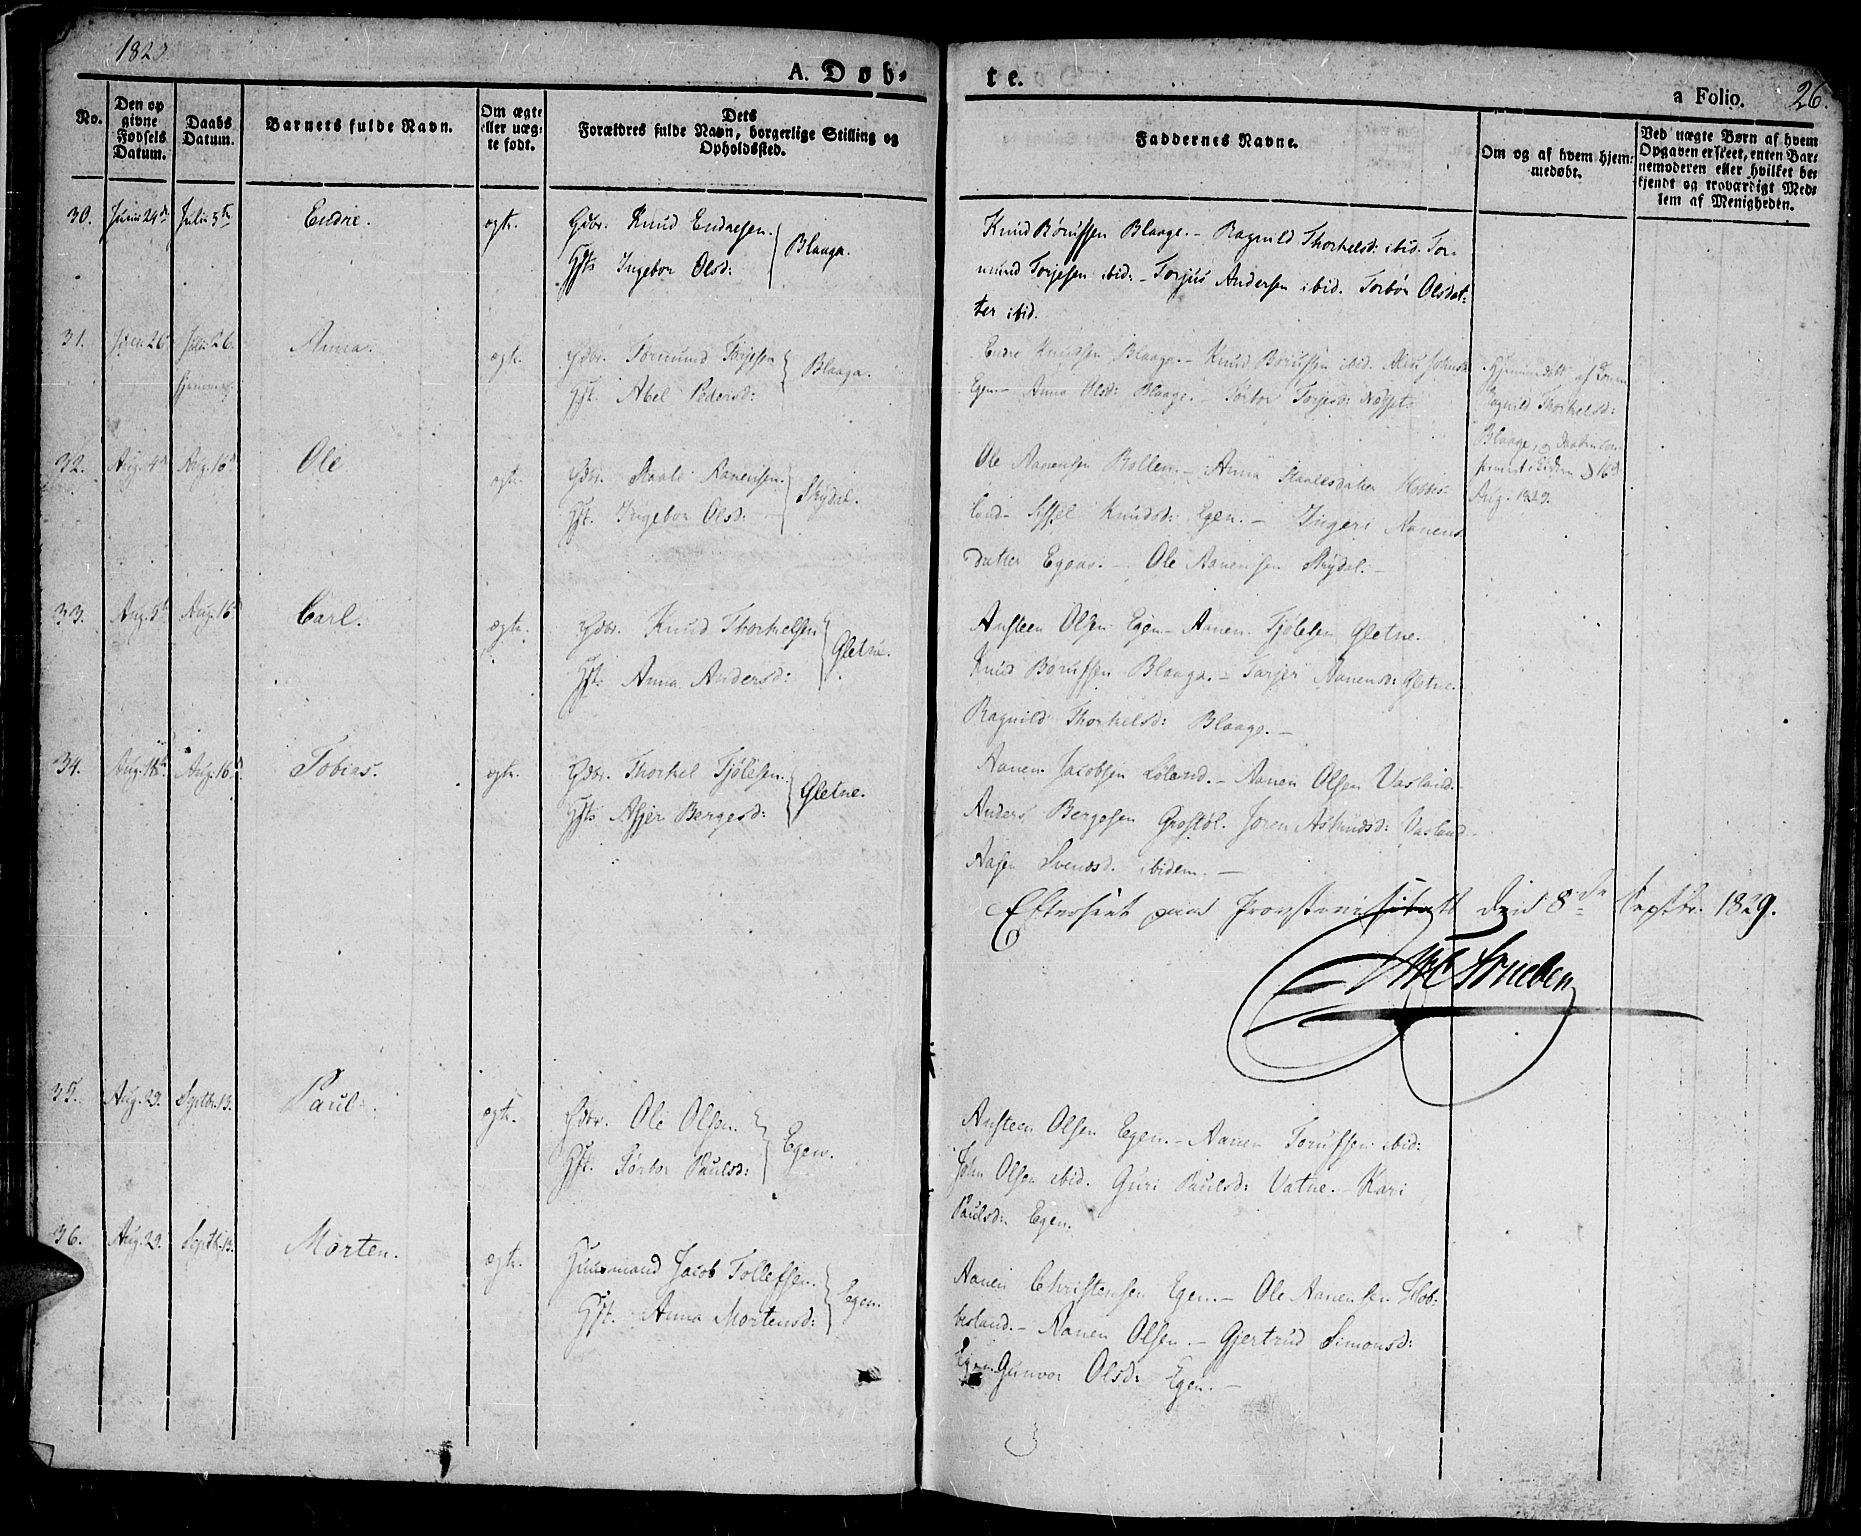 A. Døb-
te.
a Folio. 26.
No.
Den op
givne
Fødsels
Datum.
Daabs
Datum.
Barnets fulde Navn.
Om ægte
eller uæg-
te født.
Dets
Forældres fulde Navn, borgerlige Stilling og
Opholdssted.
Faddernes Navne.
Om og af hvem hjem-
medøbt.
Ved uægte Børn af hvem
Opgaven er skeet, enten Bar-
nemoderen eller hvilket be-
kjendt og troværdigt Med-
lem af Menigheden.
30. Juni 24de Julii 5te Endre. ægte. Gdbr. Knud Endresen.
Hst. Ingebor Olsd: Blaaga.
Knud Børufsen Blaage. - Ragnild Thorkelsd: ibid. Tor-
mund Torjesen ibid: - Torjus Andersen ibid. Torbor Olsdat-
ter ibid.
31. 26 Julii 26. Anna. ægte. Gdbr. Tormund Torjesen
Hst. Abel Pedersd: Blaaga.
Endre Knudsen Blaaga. - Knud Børufsen ibid.
Egen - Anna Olsd: Blaage. - Torbor Torjesd:
Hjemmedøbt af
Ragnild Thorkelsd:
Blaage, og Daaben con-
firmeret ibidem D 16de
Aug. 1829.
32. Aug. 4de Aug. 16de Ole ægte. Gdbr. Staale Aanensen.
Hst. Ingebor Olsd: Skydal.
Ole Aanensen Bollen. - Anna Staalesdatter Hobbes-
land - Sissel Knudsd: Egen. - Ingeri Aanens
datter Egaas. - Ole Aanensen Skydal. -
33. Aug. 5te Aug. 16de Carl. ægte. Gdbr. Knud Thorkelsen
Hst. Anna Andersd: Gletne.
Austeen Olsen Egen - Aanen Tjølesen Gletne.
Knud Børufsen Blaaga. - Tarjer Aanensd: Gletne.
Ragnild Thorkelsd: Blaage. -
34. Aug. Aug. 16de Tobias. ægte. Gdbr. Thorkel Tjølesen.
Hst. Asjer Bergesd: Gletne.
Aanen Jacobsen Løland. - Aanen Olsen Vasland.
Anders Bergesen Grostøl. Joren Aslaksd: Vasland
Aasen Svendsd. ibidem. -
Efterseet paa Provstevisitats Dend 8de Septbr. 1829.
35. Aug. 29. Septbr. 13. Paul. ægte. Gdbr. Ole Olsen.
Hst. Torbor Paulsd: Egen.
Austeen Olsen Egen. - Aanen Torufsen ibid:
John Olsen ibid. Guri Paulsd: Vatne. Kari
Paulsd: Egen.
36. Aug. 29. Septbr. 13. Morten. ægte. Huusmand Jacob Tollefsen.
Hst. Anna Mortensd: Egen.
Aanen Christensen Egen. - Ole Aanensen Hob-
besland. - Aanen Olsen. - Gjertrud Simonsd:
Egen. Gunvor Olsd: Egen. -